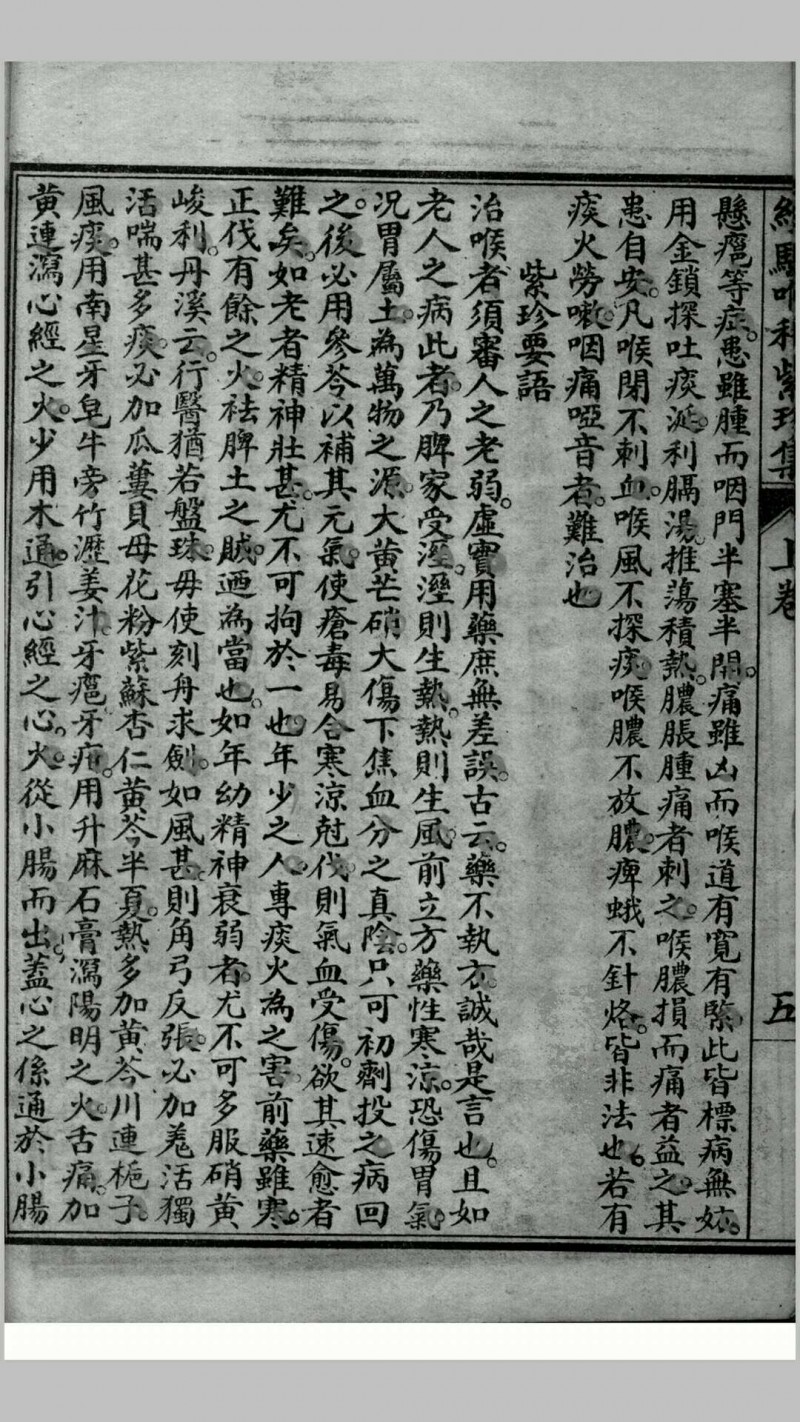 經驗喉科紫珍集 上卷 五
懸癰等症。患雖腫而咽門半塞半開。痛雖凶而喉道有寬有緊此皆標病無妨。
用金鎖探吐痰涎。利膈湯推蕩積熱。膿脹腫痛者刺之。喉膿損而痛者益之。其
患自安。凡喉閉不刺血。喉風不探痰。喉膿不放膿。痺蛾不針烙。皆非法也。若有
痰火勞嗽。咽痛啞音者。難治也
紫珍要語
治喉者須審人之老弱。虛實用藥庶無差誤。古云。藥不執方。誠哉是言也。且如
老人之病此者。乃脾家受溼。溼則生熱。熱則生風。前立方藥性寒涼。恐傷胃氣。
况胃屬土。為萬物之源。大黃芒硝大傷下焦血分之真陰。只可初劑投之。病回
之後必用參苓以補其元氣。使瘡毒易合。寒涼尅伐。則氣血受傷。欲其速愈者
難矣。如老者精神壯甚。尤不可拘於一也。年少之人。專痰火為之害。前藥雖寒。
正伐有餘之火。祛脾土之賊。迺為當也。如年幼精神衰弱者。尤不可多服硝黃
峻利。丹溪云。行醫猶若盤珠。毋使刻舟求劍。如風甚。則角弓反張。必加羗活獨
活喘甚多痰。必加瓜蔞貝母花粉紫蘇杏仁黃芩半夏。熱多加黃芩川連梔子。
風痰。用南星牙皂牛旁竹瀝姜汁。牙癰牙疳。用升麻石膏瀉陽明之火。舌痛。加
黃連瀉心經之火。少用木通。引心經之心火。從小腸而出。蓋心之係通於小腸